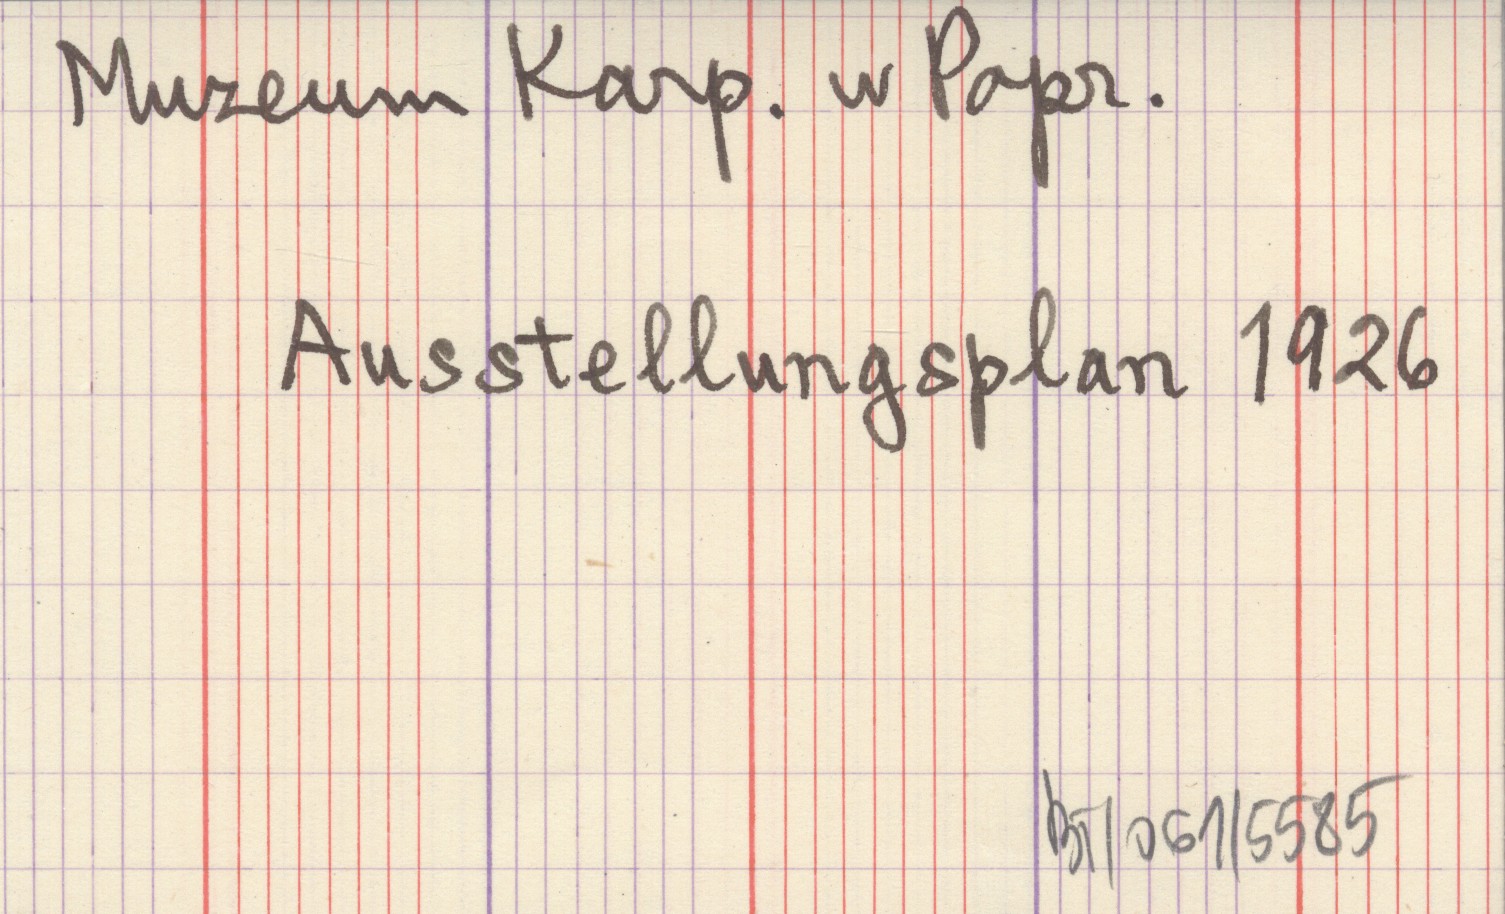 Muzeum Karp. w Popr.
Ausstellungsplan 1926
BT/061/5585